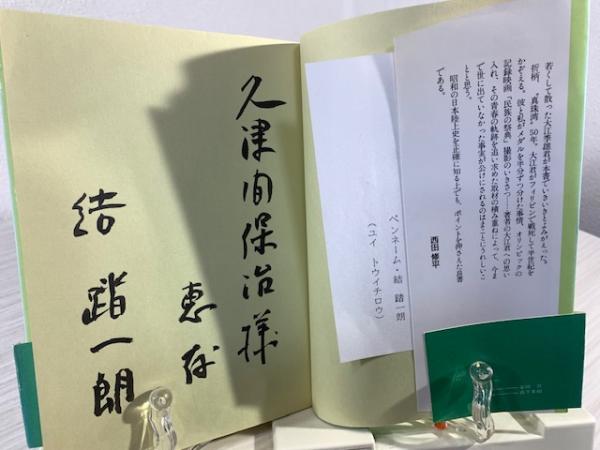 若くして散った大江季雄君が本書でいきいきとよみがえった。
折柄、〝真珠湾〟50年。大江君がフィリピンで戦死して半世紀を
かぞえる。彼と私がメダルを半分ずつ分けた事情、オリンピックの
記録映画「民族の祭典」撮影のいきさつ――著者の大江君への思い
入れ、その青春の軌跡を追い求めた取材の積み重ねによって、今ま
で世に出ていなかった事実が公けにされるのはまことにうれしいこ
とと思う。
昭和の日本陸上史を正確に知る上でも、ポイントを押さえた良書
である。
西田 修平
ペンネーム・結 踏一朗
(ユイ トウイチロウ)
久津間保治様
恵存
結 踏一朗